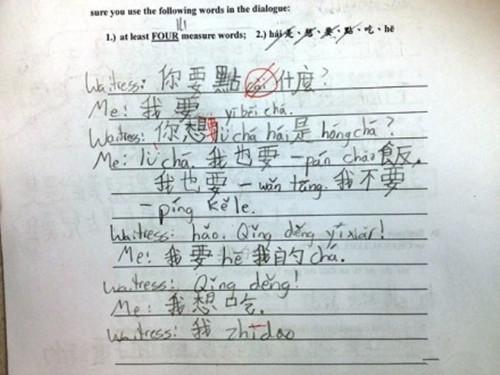 sure you use the following words in the dialogue:
1.) at least FOUR measure words; 2.) hái 是、想、要、點、吃、hē
Waitress: 你要點 什麼?
Me: 我要 yì bēi chá.
Waitress: 你想要lǜ chá hái是 hóng chá?
Me: lǜ chá. 我也要一pán chǎo飯.
我也要一wǎn tāng. 我不要
一píng kělè.
Waitress: hǎo. Qǐng děng yíxiàr!
Me: 我要hē 我自的 chá.
Waitress: Qǐng děng!
Me: 我想吃.
Waitress: 我 zhīdao